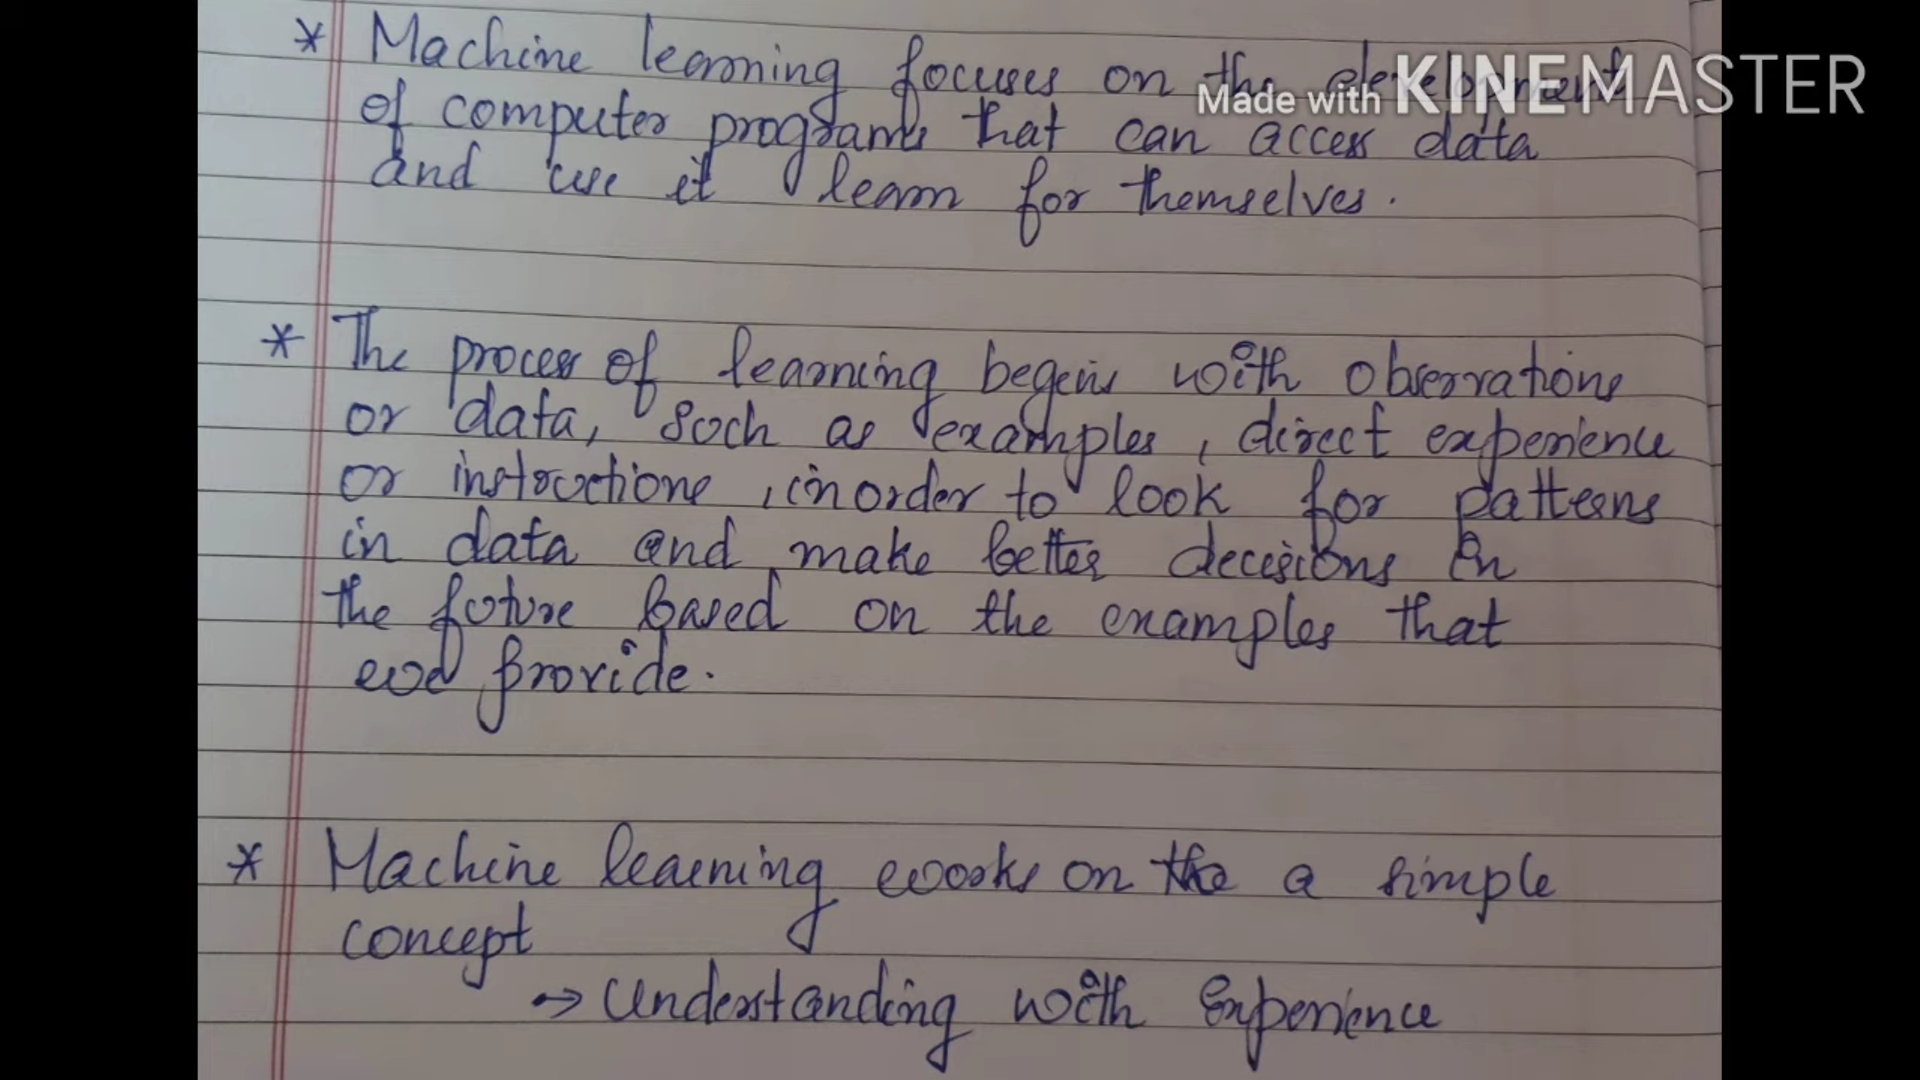 * Machine learning focuses on the development
Made with KINEMASTER
of computer programs that can access data
and use it learn for themselves.
* The process of learning begins with observations
or data, such as examples, direct experience
or instructions, in order to look for patterns
in data and make better decisions in
the future based on the examples that
we provide.
* Machine learning works on the a simple
concept
→ Understanding with Experience